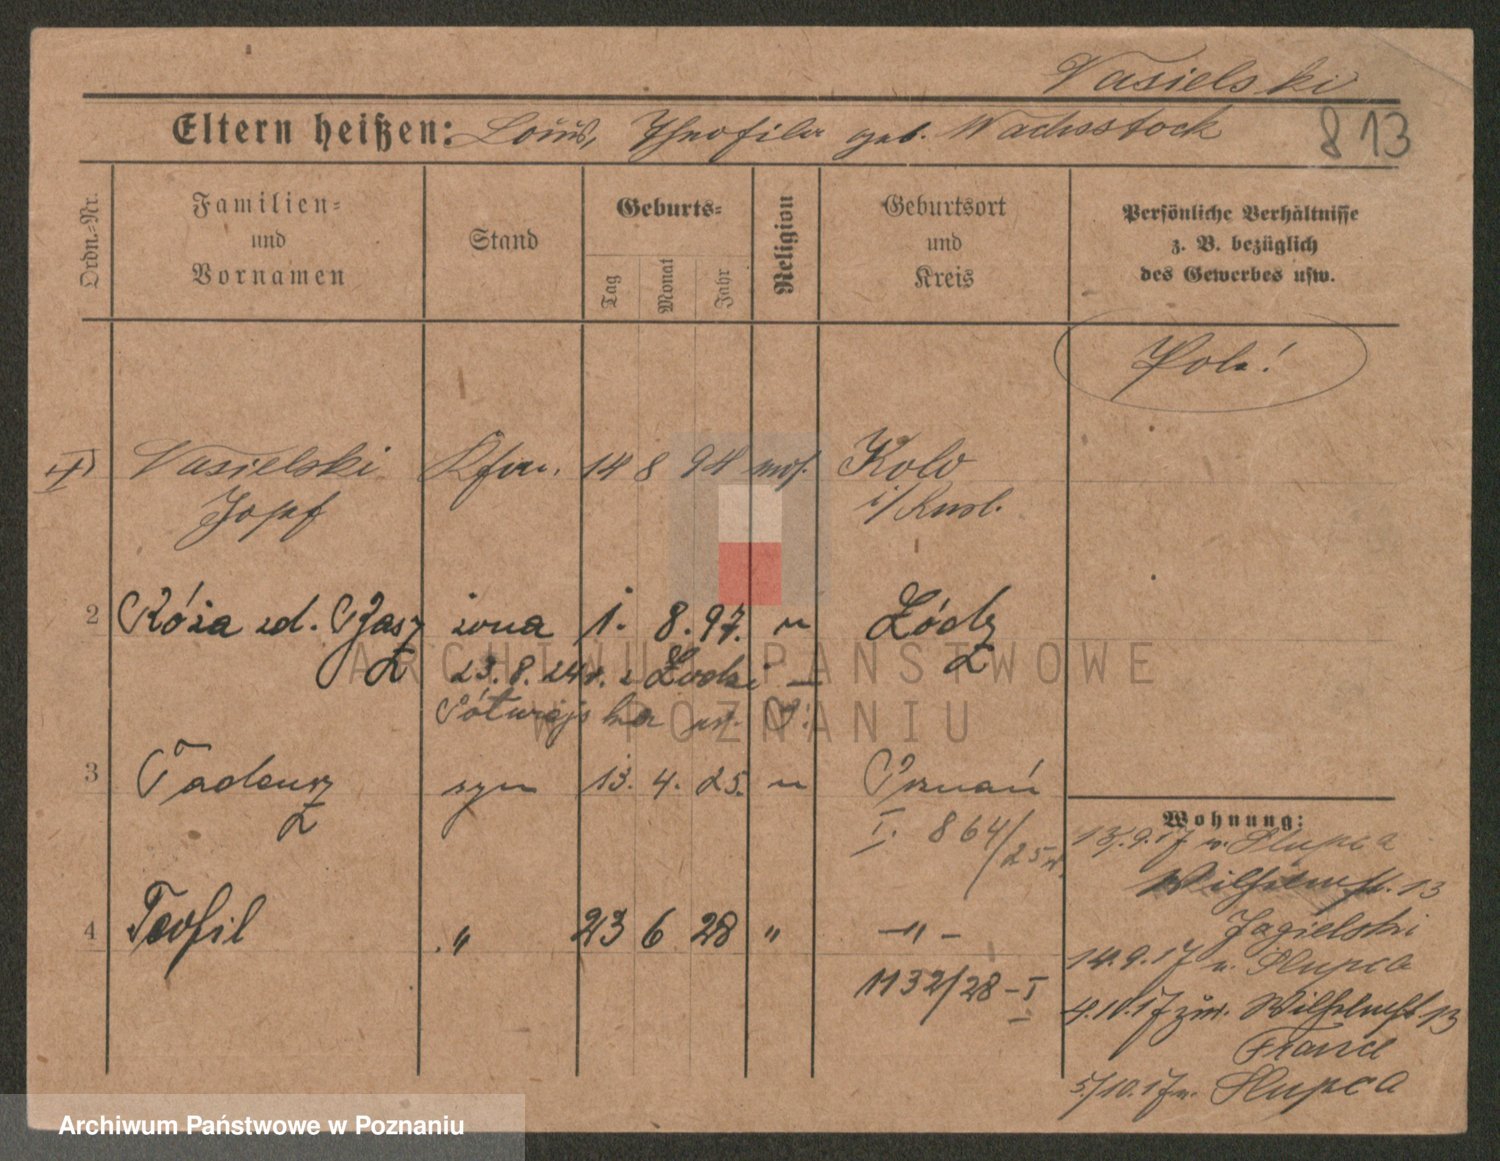 Vasielski
Eltern heißen: Louis, Theofila geb. Wachsstock
813
Ordn.-Nr.
Familien-
und
Vornamen
Stand
Geburts-
Tag
Monat
Jahr
Religion
Geburtsort
und
Kreis
Persönliche Verhältnisse
z. B. bezüglich
des Gewerbes usw.
Pole!
1) Vasielski 14 8 94 mos. Kolo
Josef i/Russl.
2 Róża zd. Jasz żona 1. 8. 97. " Łódź
23.8.24 r. z Łodzi
3 Tadeusz syn 13. 4. 25. " Poznań
I. 864/25
4 Teofil " 23 6 28 " -"-
1132/28-I
Wohnung:
13.9.17 n. Slupca
Wilhelmst. 13
Jagielski
14.9.17 n. Slupca
4.10.17 zur. Wilhelmst. 13
Franci
5/10.17 n. Slupca
ARCHIWUM PAŃSTWOWE
W POZNANIU
Archiwum Państwowe w Poznaniu